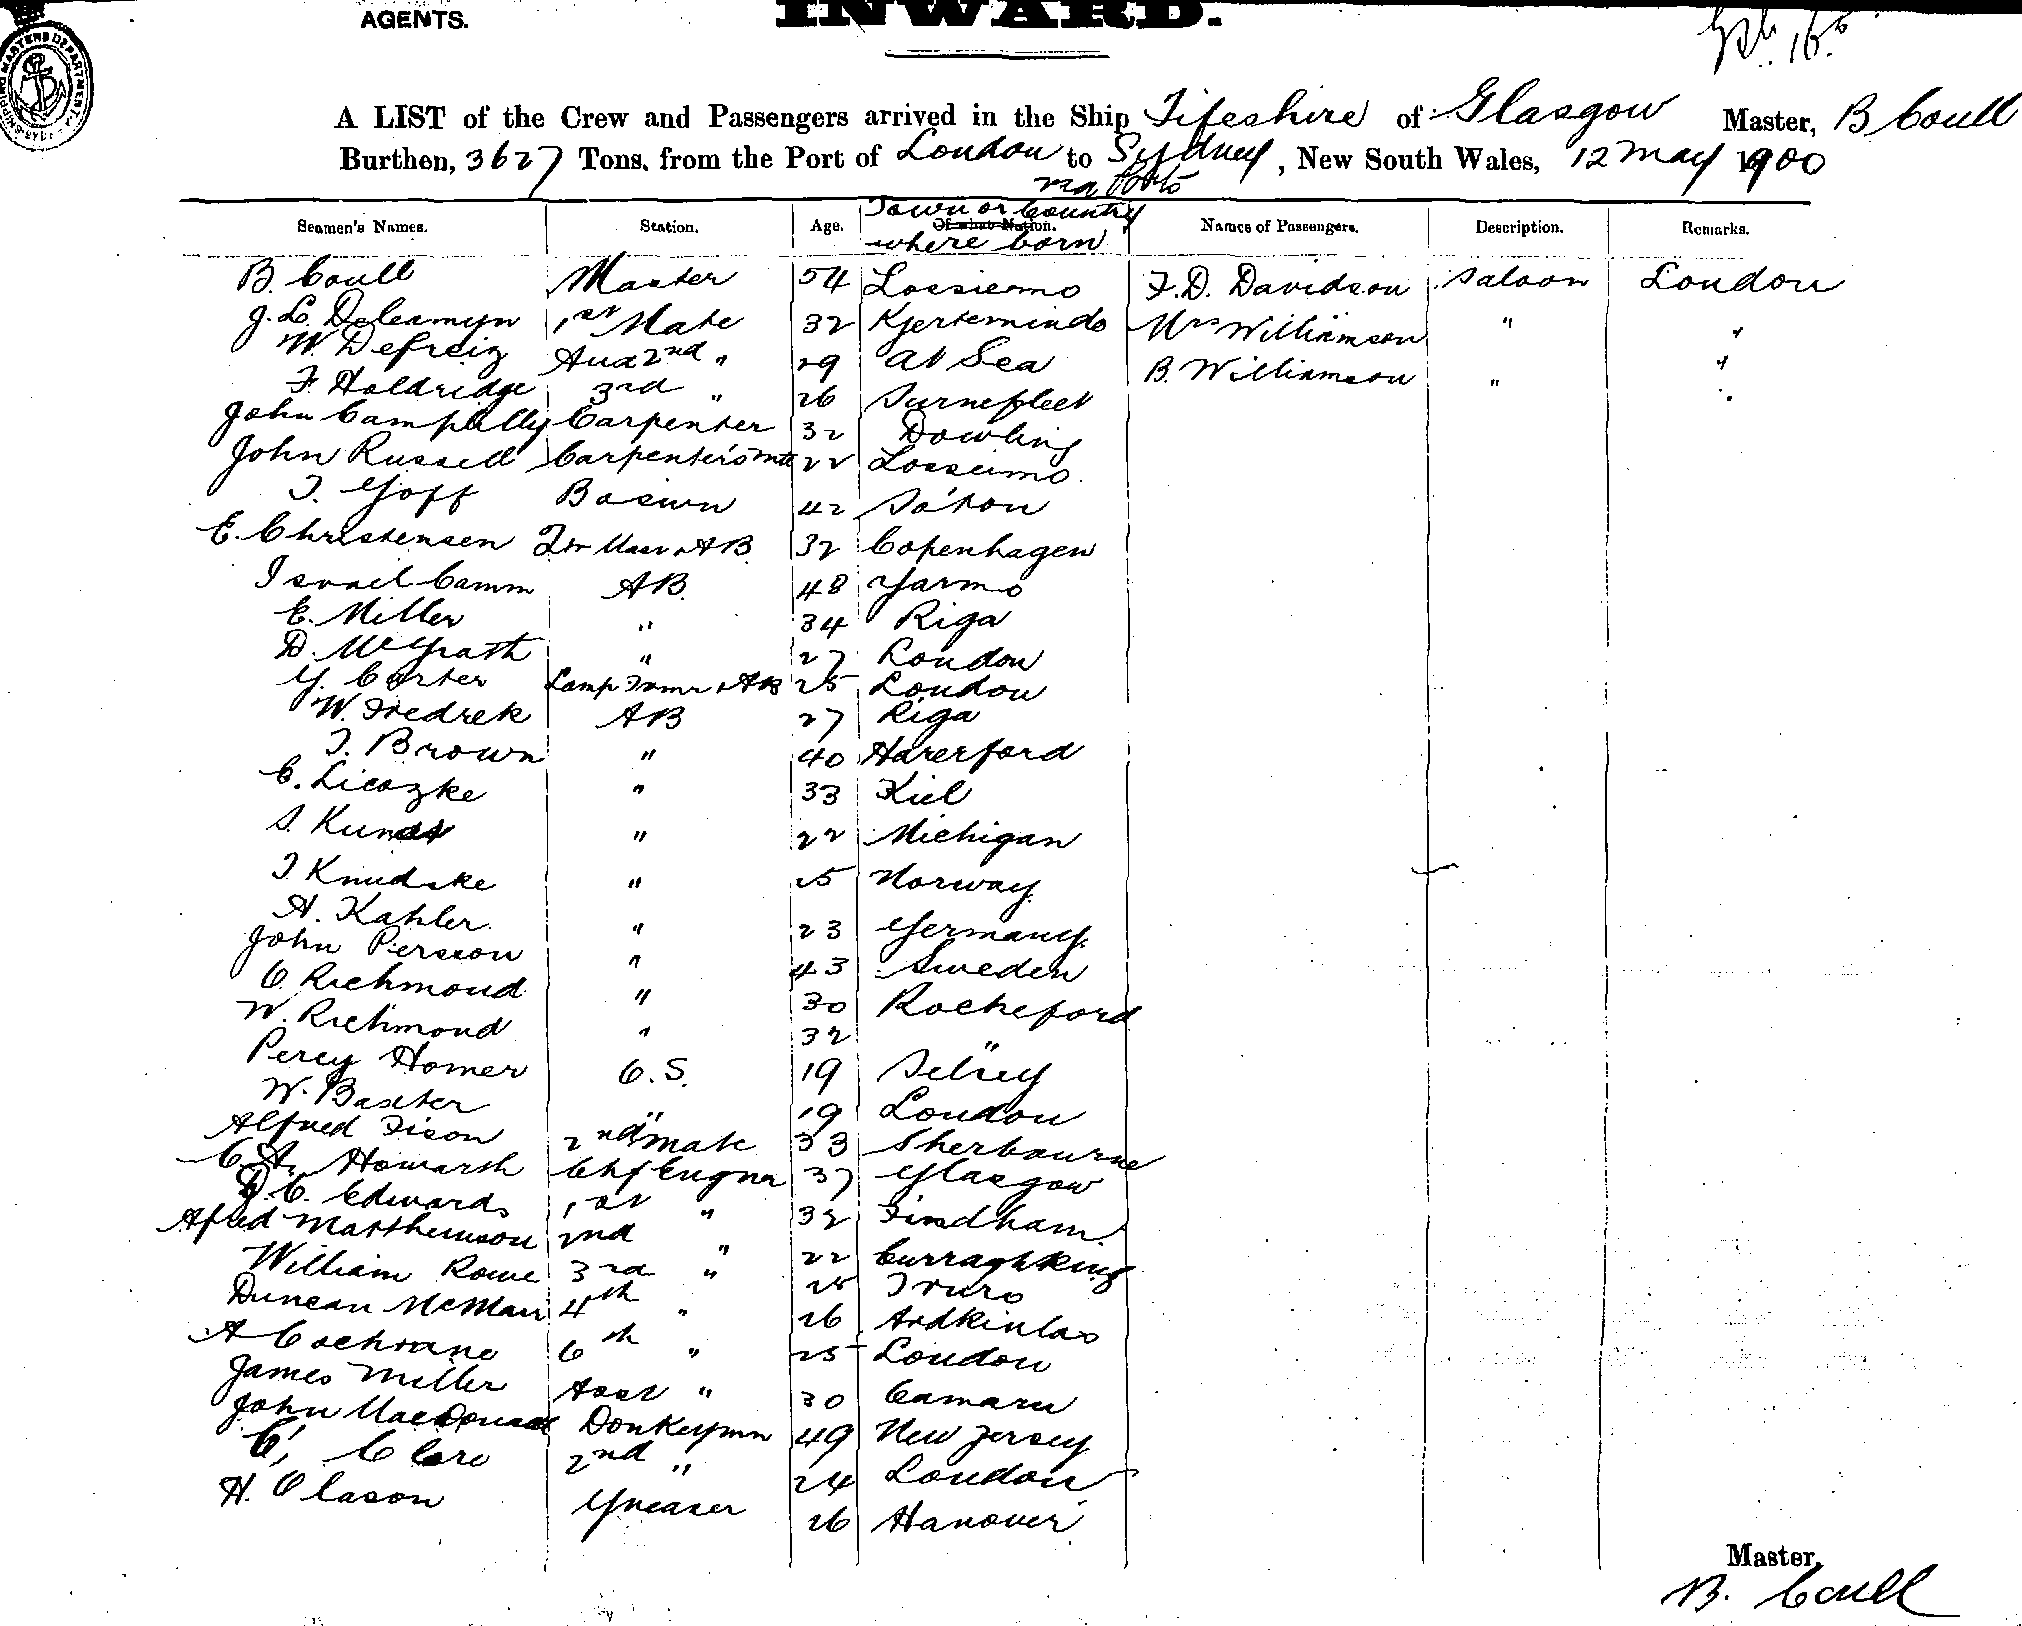 AGENTS.
INWARD.
A LIST of the Crew and Passengers arrived in the Ship Fifeshire of Glasgow Master, B Coull
Burthen, 3627 Tons, from the Port of London to Sydney, New South Wales, 12 May 1900
via Ports
Seamen's Names. Station. Age. Of what Nation. Town or Country where born Names of Passengers. Description. Remarks.
B. Coull Master 54 Lossiemo F. D. Davidson Saloon London
J. L. 1st Mate 32 Kjerteminde Mrs Williamson " "
W. Defreiz 2nd " 29 At Sea B. Williamson " "
F. Holdridge 3rd " 26
John Carpenter 32 Dowling
John Russell Carpenter's mte 22 Lossiemo
T. Goff Boswn 42
E. Christensen AB 32 Copenhagen
Israel Camm AB. 48 Yarmo
E. Miller " 34 Riga
D. McGrath " 27 London
G. Carter Lamp Trmr & AB 25 London
W. Fredrek AB 27 Riga
T. Brown " 40 Haverford
C. Liedzke " 33 Kiel
S. " 22 Michigan
T Knudske " 25 Norway.
A. Kahler " 23 Germany.
John Persson " 43 Sweden
C. Richmond " 30 Rocheford
W. Richmond " 32 "
Percy Homer O.S. 19 Selsey
W. Baxter " 19 London
Alfred Fison 2nd mate 33 Sherbourne
C. A. Howarth Chf Engnr 37 Glasgow
D. C. Edwards 1st " 32 Findham
Alfred Matthewson 2nd " 22
William Rowe 3rd " 25 Truro
Duncan 4th " 26 Ardkinlas
A Cochrane 6th " 25 London
James Miller Asst " 30 Oamaru
John MacDonald Donkeymn 49 New Jersey
C. Clare 2nd " 24 London
H. Olason Greaser 26 Hanover
Master,
B. Coull